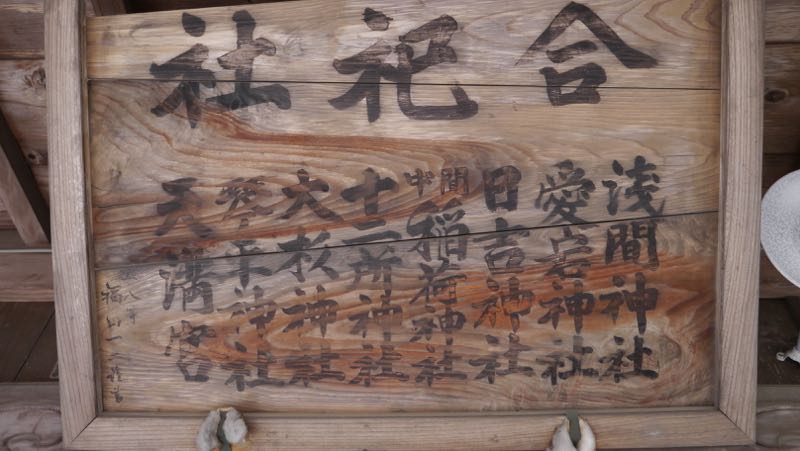 合祀社
浅間神社
愛宕神社
日吉神社
中間稲荷神社
十二所神社
大杉神社
琴平神社
天満宮